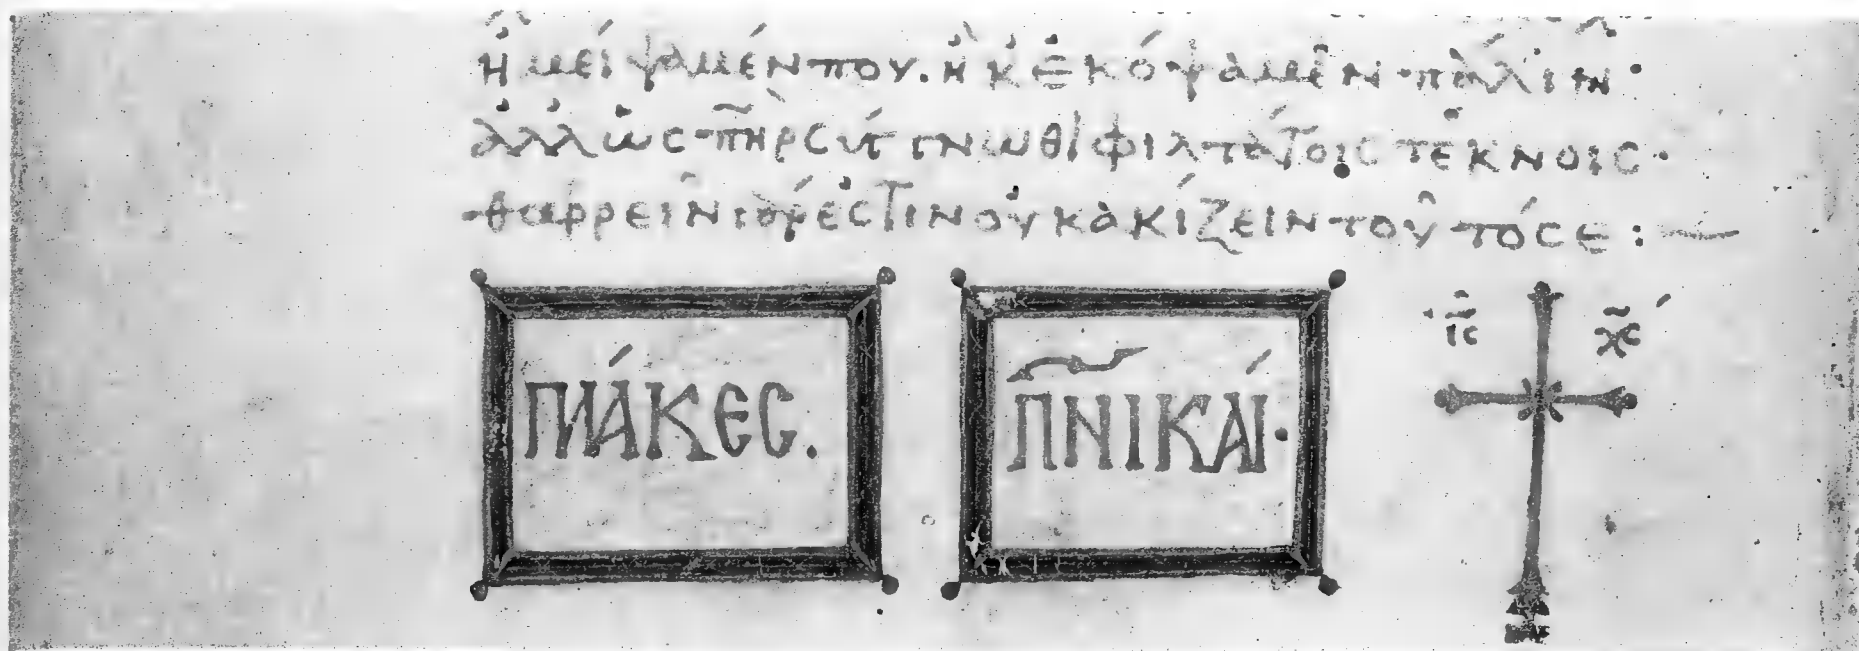 ἠμείψαμέν που. ἢ κἐκόψαμεν πάλιν·
ἄλλως π̅η̅ρ σύγγνωθι φιλτάτοις τέκνοις·
θαρρεῖν γὰρ ἔστιν οὐ κακίζειν τοῦτό σε :
ΠΛΆΚΕϹ. Π̅Ν̅ΙΚΑΊ· ι̅ς̅ χ̅ς̅